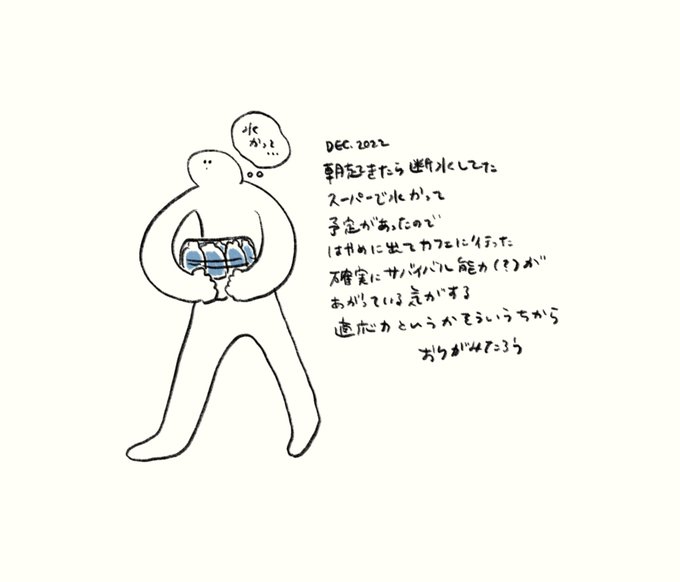 水
かって
...
DEC. 2022
朝起きたら断水してた
スーパーで水かって
予定があったので
はやめに出てカフェに行った
確実にサバイバル能力(?)が
あがっている気がする
適応力というかそういうちから
おりがみたろう